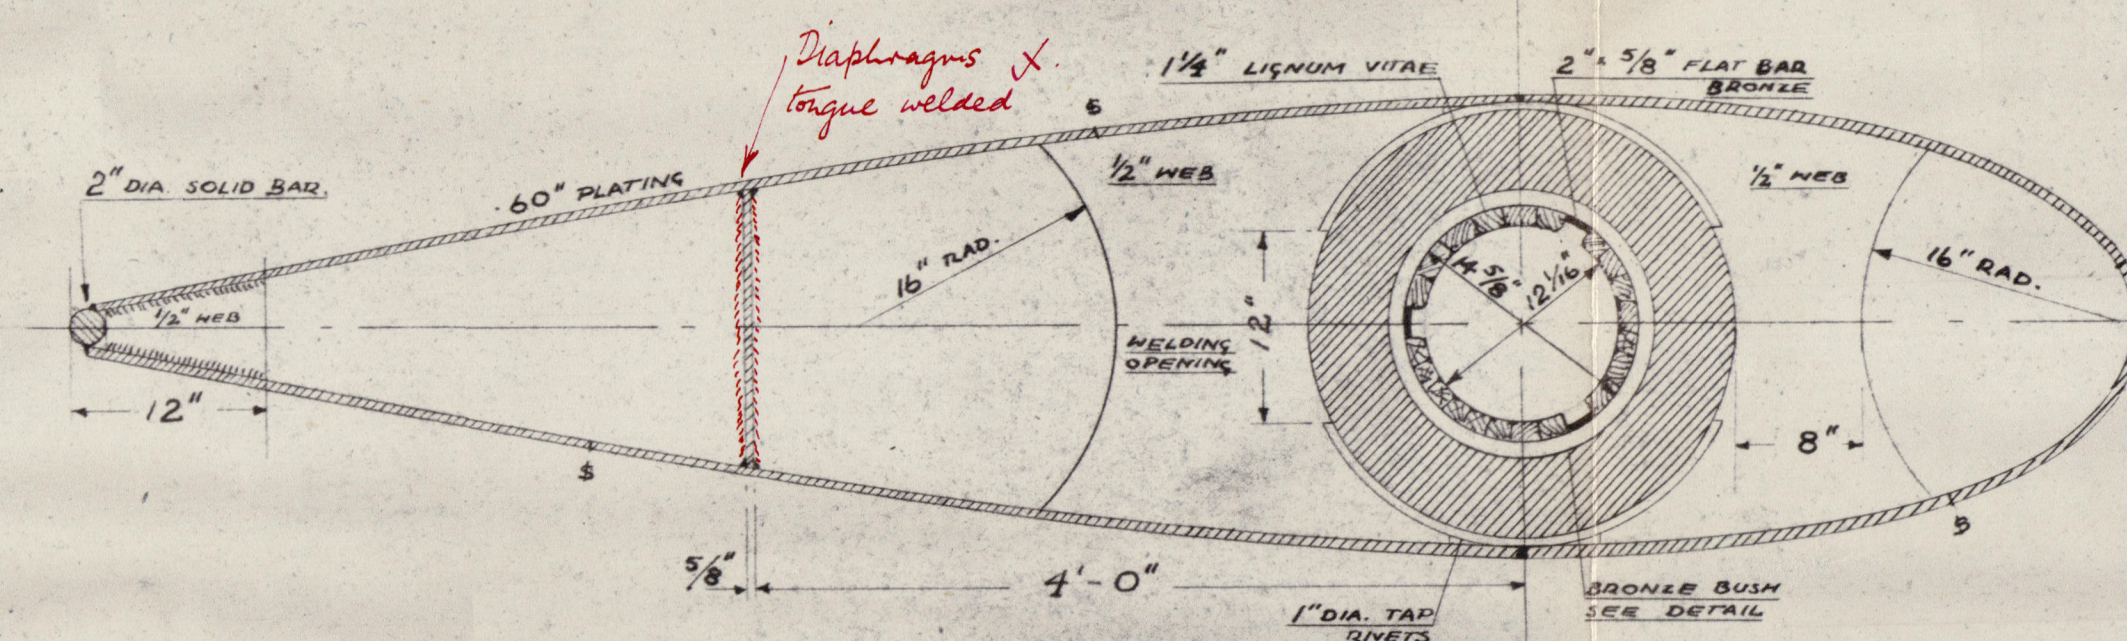 Diaphragms X.
tongue welded
1¼" LIGNUM VITAE
2" x 5/8" FLAT BAR
BRONZE
2" DIA. SOLID BAR.
.60" PLATING
$
½" WEB
½" WEB
16" RAD.
14 5/8"
12 1/16"
16" RAD.
½" WEB
12"
WELDING
OPENING
12"
8"
$
$
5/8"
4'-0"
1" DIA. TAP
RIVETS
BRONZE BUSH
SEE DETAIL